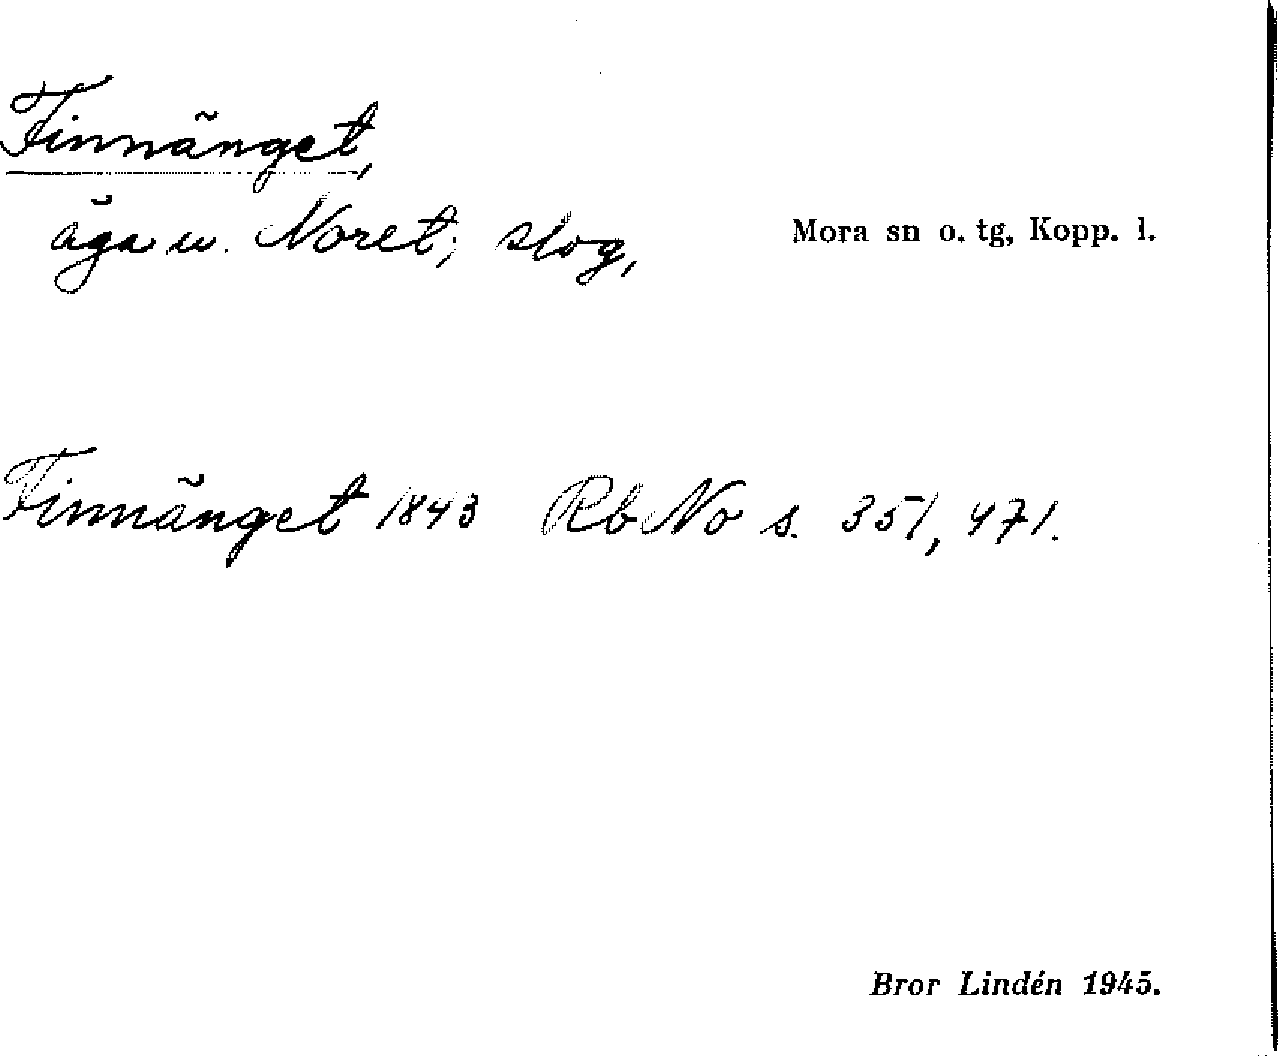 Finnänget,
äga u. Noret; slog,
Mora sn o. tg, Kopp. l.
Finnänget 1843 Rb No s. 351, 471.
Bror Lindén 1945.